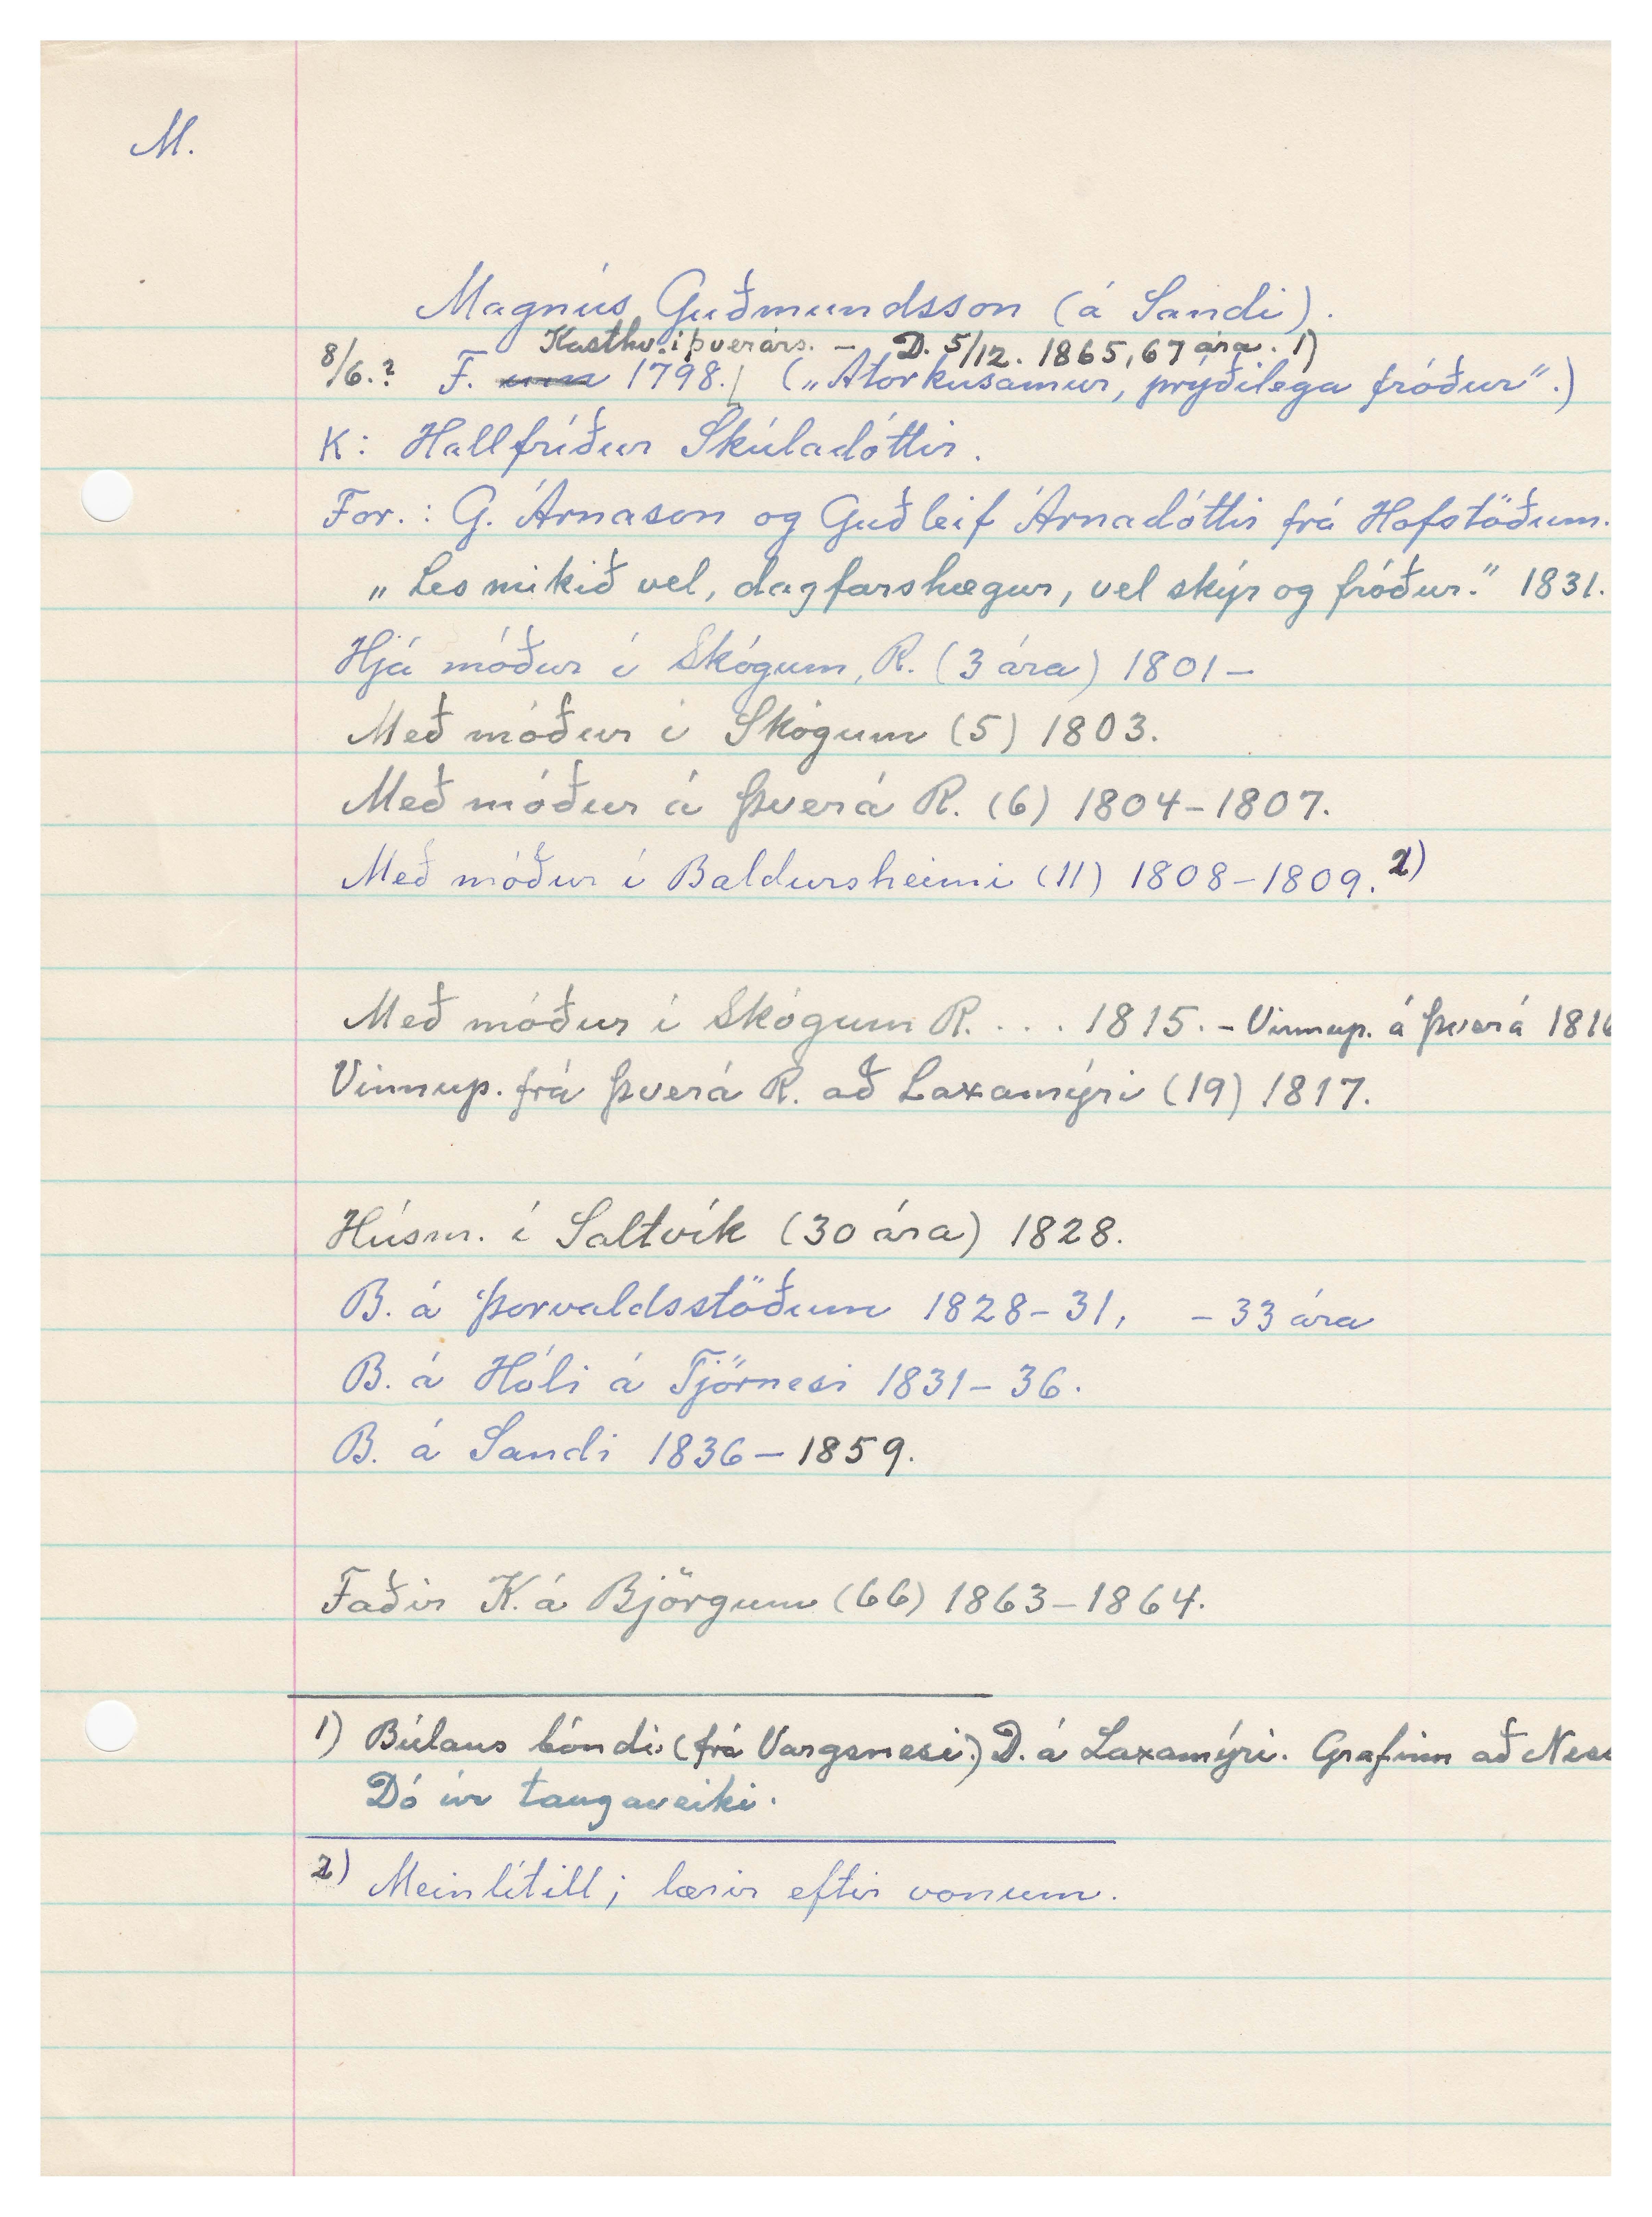 M.
Magnús Guðmundsson (á Sandi).
Kasthv. í Þverárs. – D. 5/12. 1865, 67 ára. 1)
8/6.? F. 1798. („Atorkusamur, prýðilega fróður“.)
K: Hallfríður Skúladóttir.
For.: G. Árnason og Guðleif Árnadóttir frá Hofstöðum.
„Les mikið vel, dagfarshægur, vel skýr og fróður.“ 1831.
Hjá móður í Skógum, R. (3 ára) 1801 –
Með móður í Skógum (5) 1803.
Með móður á Þverá R. (6) 1804-1807.
Með móður í Baldursheimi (11) 1808-1809. 2)
Með móður í Skógum R. . . . 1815. – Vinnup. á Þverá 1816
Vinnup. frá Þverá R. að Laxamýri (19) 1817.
Húsm. í Saltvík (30 ára) 1828.
B. á Þorvaldsstöðum 1828-31, - 33 ára
B. á Hóli á Tjörnesi 1831-36.
B. á Sandi 1836 – 1859.
Faðir K. á Björgum (66) 1863-1864.
1) Búlaus bóndi (frá Vargsnesi.) D. á Laxamýri. Grafinn að Nesi
Dó úr taugaveiki.
2) Meinlítill; lærir eftir vonum.